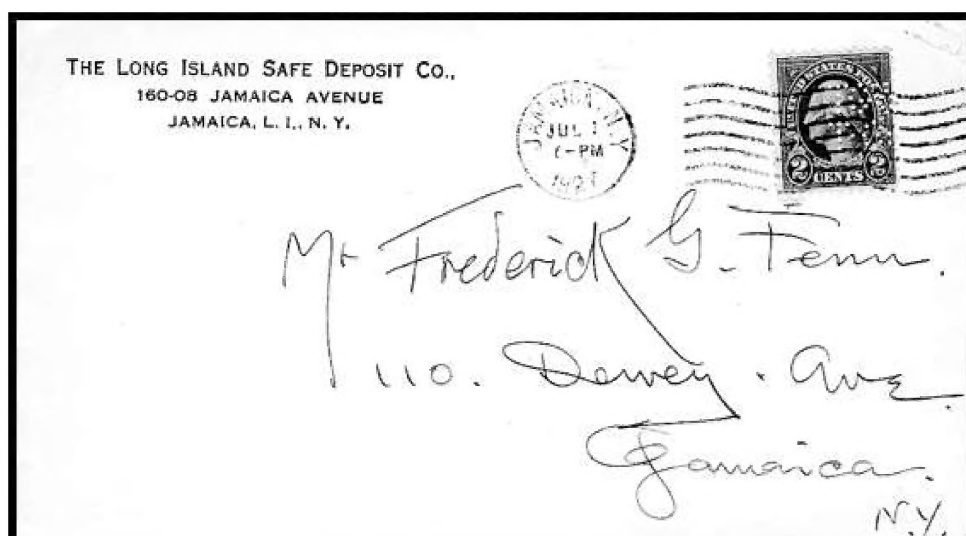 THE LONG ISLAND SAFE DEPOSIT CO.,
160-08 JAMAICA AVENUE
JAMAICA, L. I., N. Y.
JAMAICA, N.Y.
JUL 1
-PM
2 CENTS 2
Mr Frederick G. Fenn.
110. Dewey. Ave.
Jamaica.
N.Y.